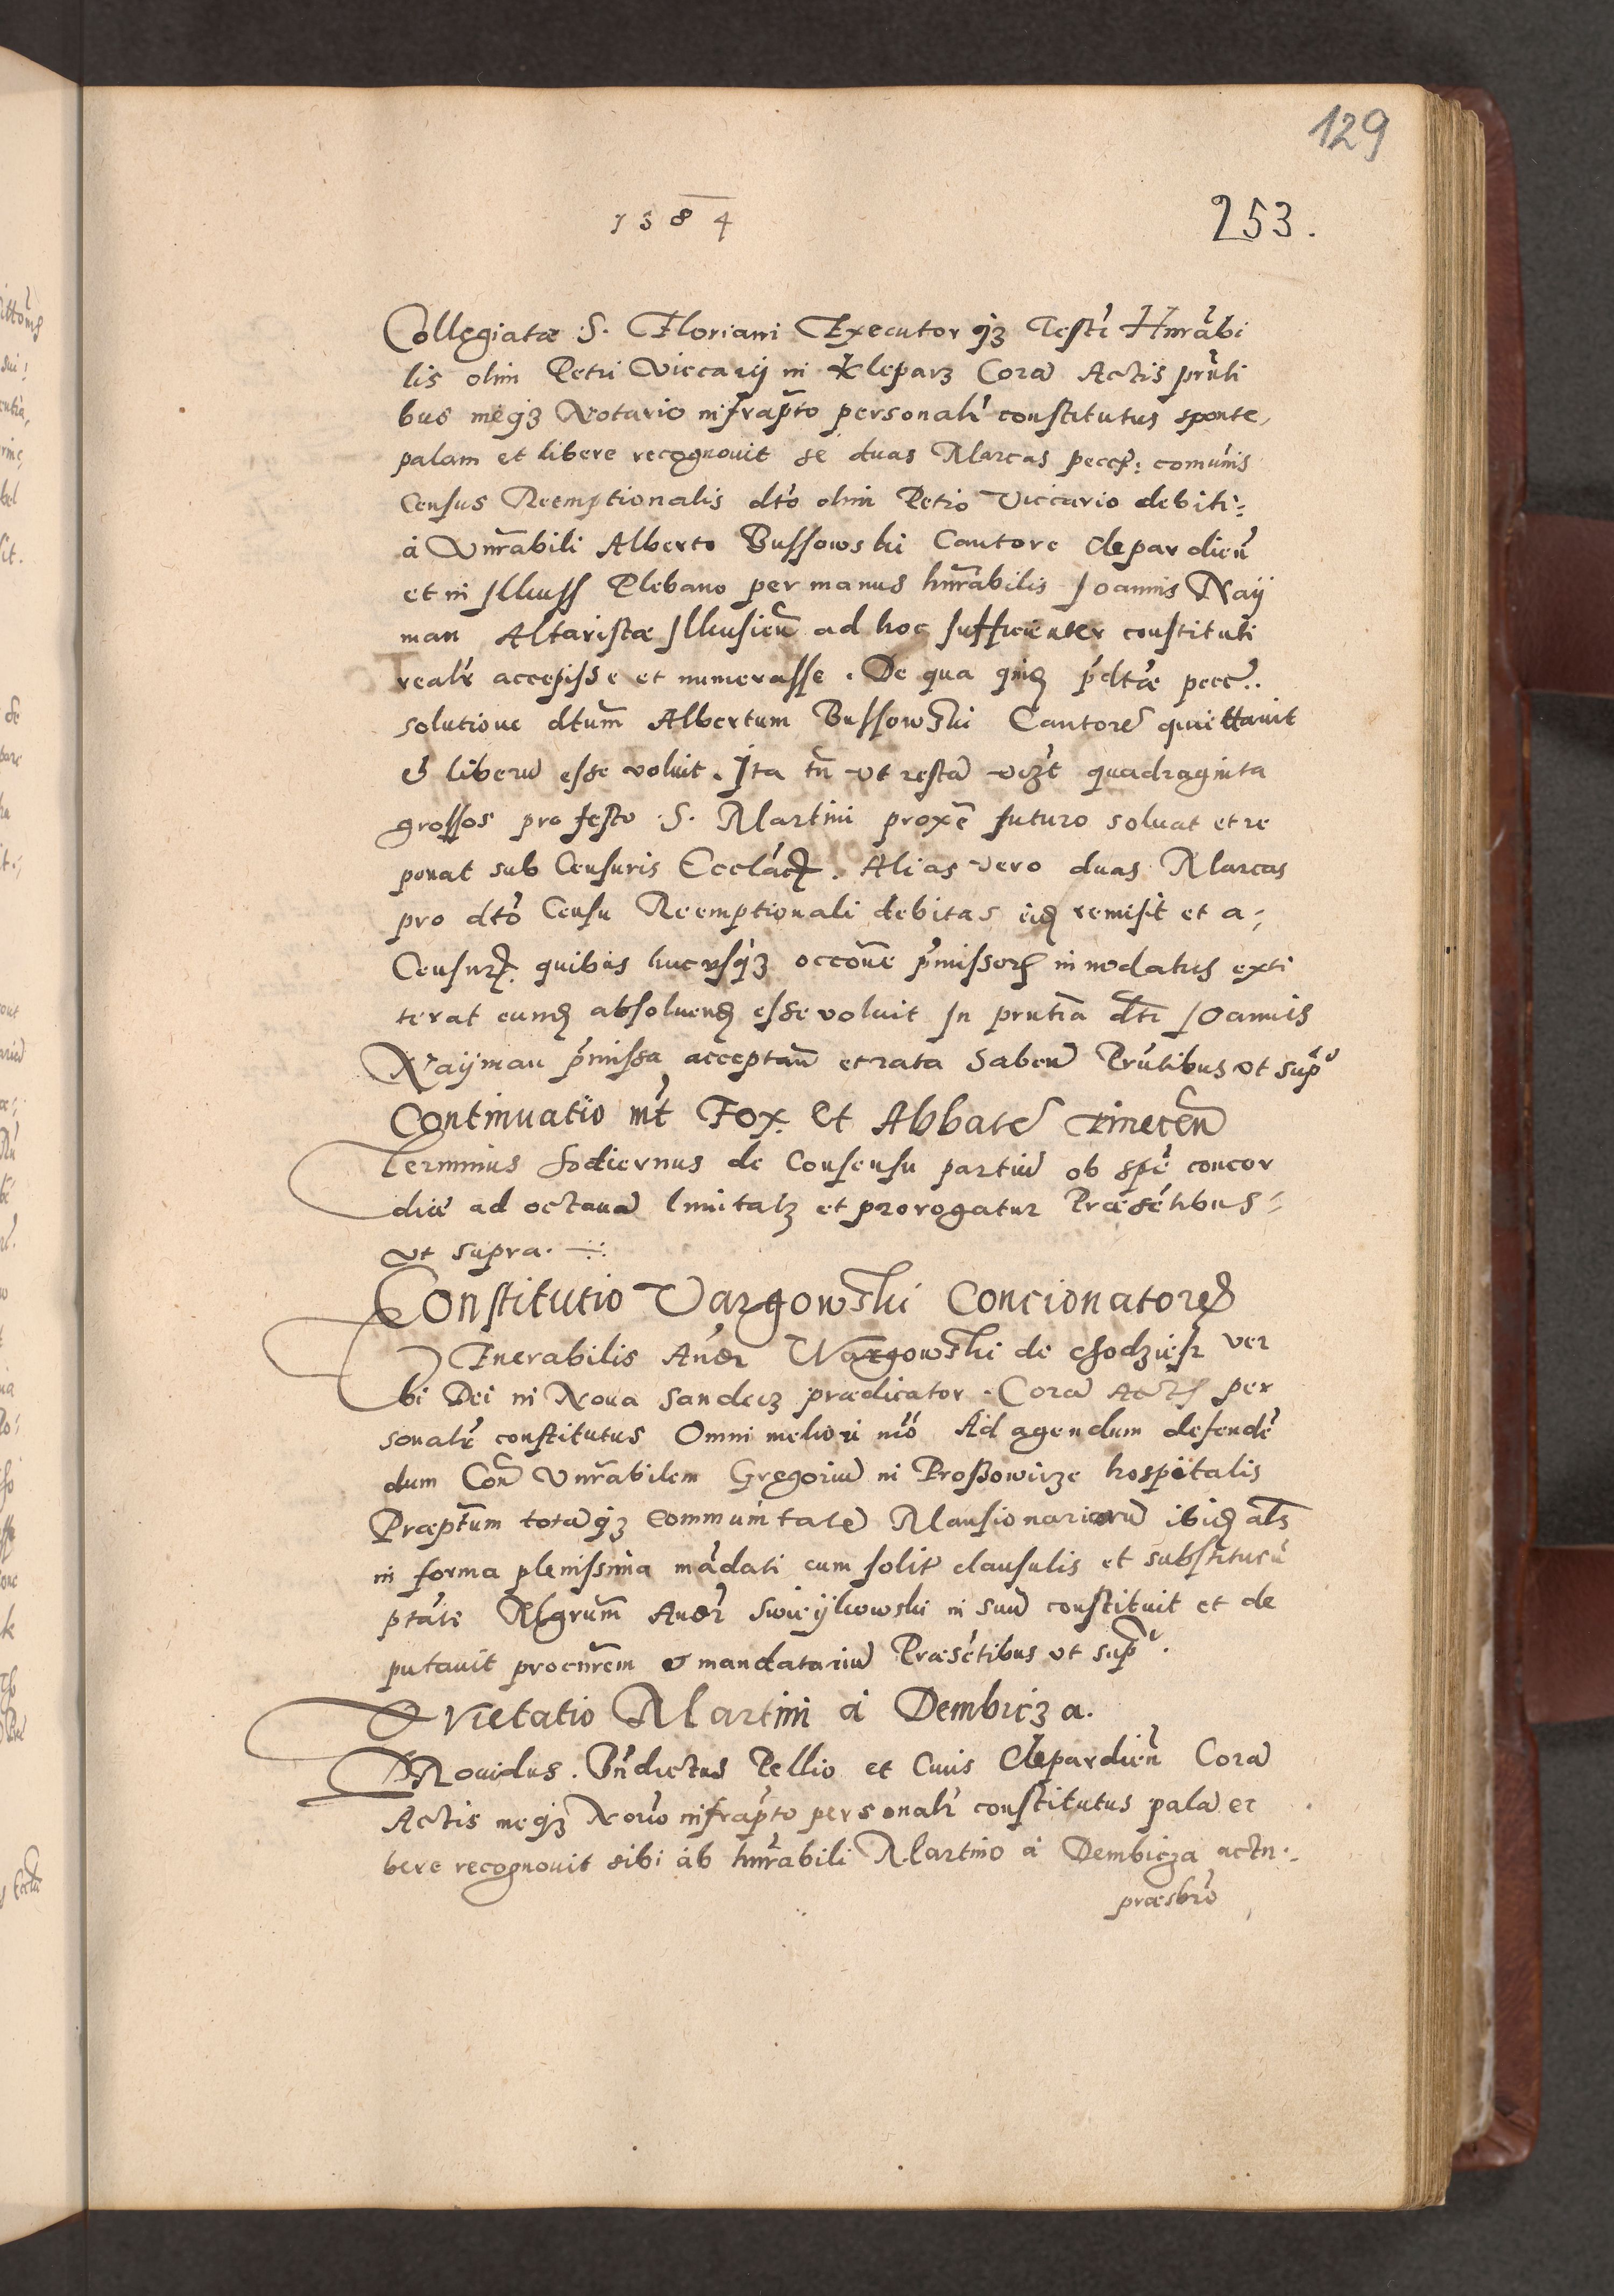 129
1584
253.
Collegiatæ S. Floriani Executor q3 Testi Hnrãbi
lis olim Petri Viccarij in Kleparz Corã Actis prñti
bus meq3 Notario infrapto personalr constitutus sponte,
palam et libere recognouit se duas Marcas pecc: comunis
Census Reemptionalis dto olim Petro Viccario debiti:
à Vnrabili Alberto Bussowski Cantore Clepardien
et in Plebano per manus hnrabilis Joannis Naij
man Altaristæ ad hoc sufficienter constituti
realr accepisse et numerasse. De qua pdtæ pecc..
solutione dtum Albertum Bussowski Cantorē quiettauit
et liberū esse voluit. Ita tn vt restā vizt quadraginta
grossos pro festo S. Martini proxē futuro soluat et re
ponat sub Censuris Eccl. Alias vero duas Marcas
pro dto Censu Reemptionali debitas remisit et a
Censur. quibus hucusq3 occone pmissor innodatus exti
terat absoluend esse voluit In prntia dti Joannis
Naijman pmissa acceptan et rata haben Prntibus vt sup
Continuatio int Fox. et Abbatē Tinecen
Terminus hodiernus de Consensu partiū ob spē concor
diæ ad octauā limitat et prorogatur Præsētibus
vt supra.
Constitutio Vargowski Concionatoris
Venerabilis Andr Wargowski de Chodziesz ver
bi Dei in Noua Sandecz prædicator. Corā Actis per
sonalr constitutus Omni meliori mo Ad agendum defendē
dum Con Vnrabilem Gregoriū in Proßowicze hospitalis
Præptum totāq3 Communitatē Mansionariorū ibid als
in forma plenissima mādati cum solit clausulis et substituēū
ptāte Mgrum Andr Swieijkowski in suū constituit et de
putauit procurem et mandatariū Præsētibus vt sup.
Qvietatio Martini à Dembicza.
Prouidus. Bndictus Pellio et Ciuis Clepardien Corā
Actis meq3 Norio infrapto personalr constitutus palā et
bere recognouit sibi ab hnrabili Martino à Dembicza actu.
præsbro